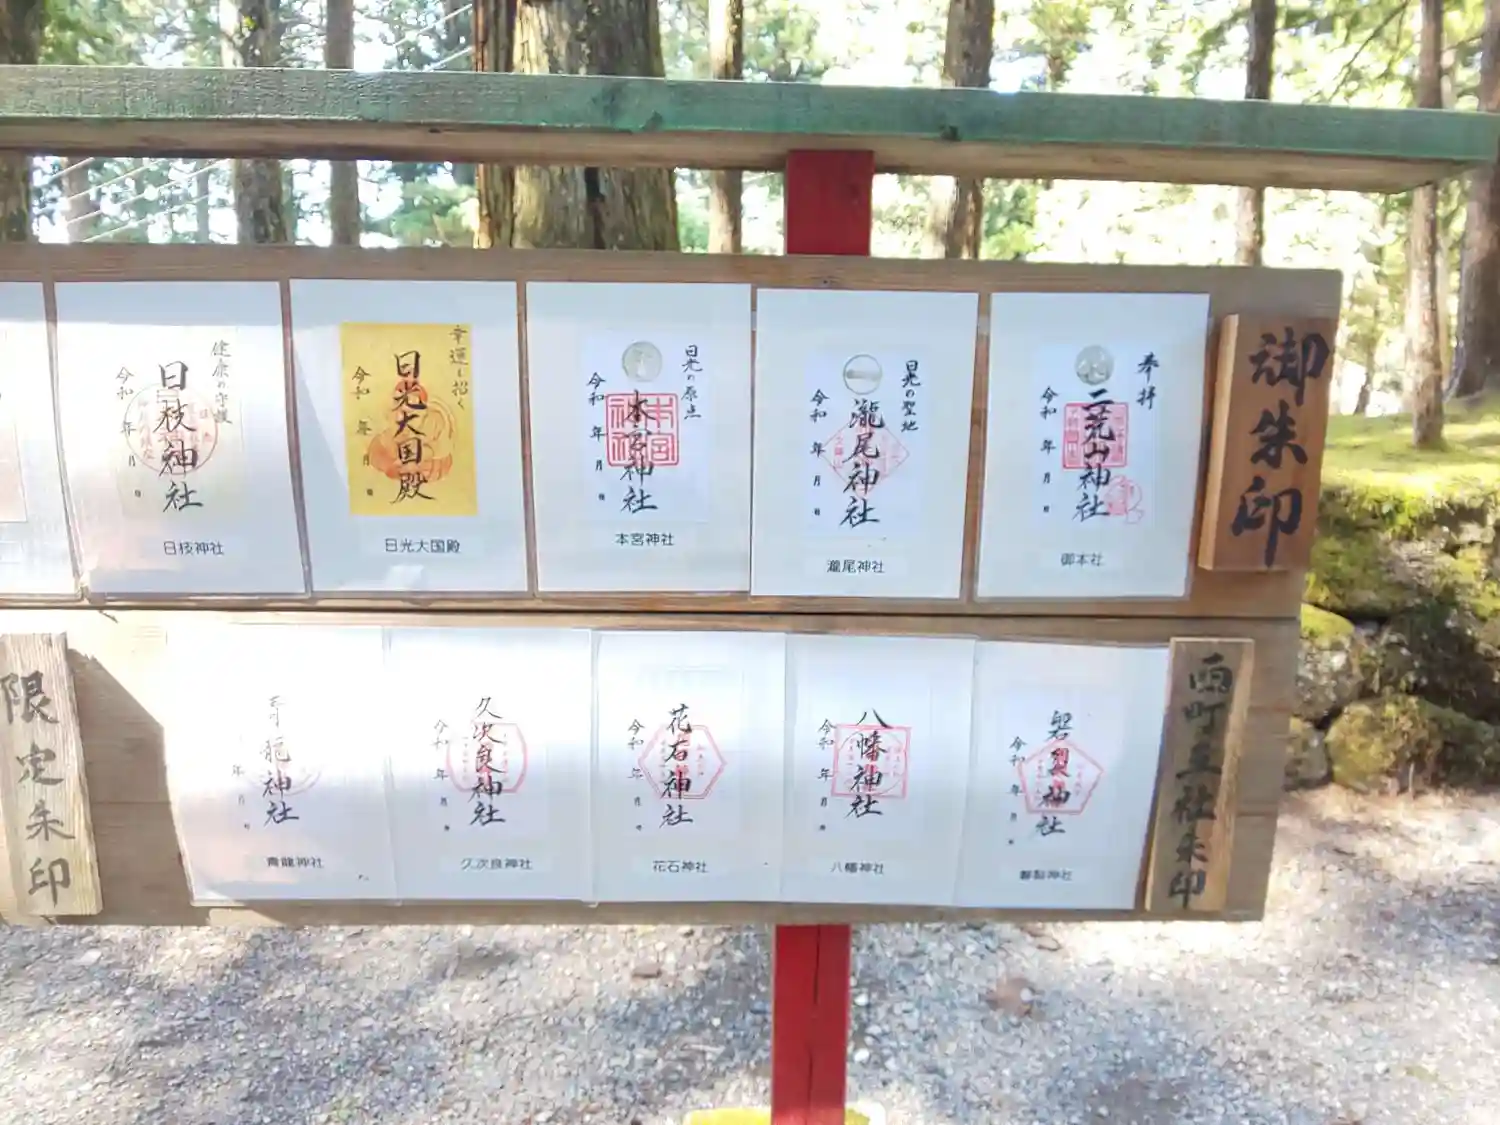 御朱印
奉拝
二荒山神社
令和 年 月 日
御本社
日光の聖地
瀧尾神社
令和 年 月 日
瀧尾神社
日光の原点
本宮神社
令和 年 月 日
本宮
神社
本宮神社
幸運を招く
日光大国殿
令和 年 月 日
日光大国殿
健康の守護
日枝神社
令和 年 月 日
日枝神社
西町五社朱印
磐裂神社
令和 年 月 日
磐裂神社
八幡神社
令和 年 月 日
八幡神社
花石神社
令和 年 月 日
花石神社
久次良神社
令和 年 月 日
久次良神社
青龍神社
年 月 日
青龍神社
限定朱印